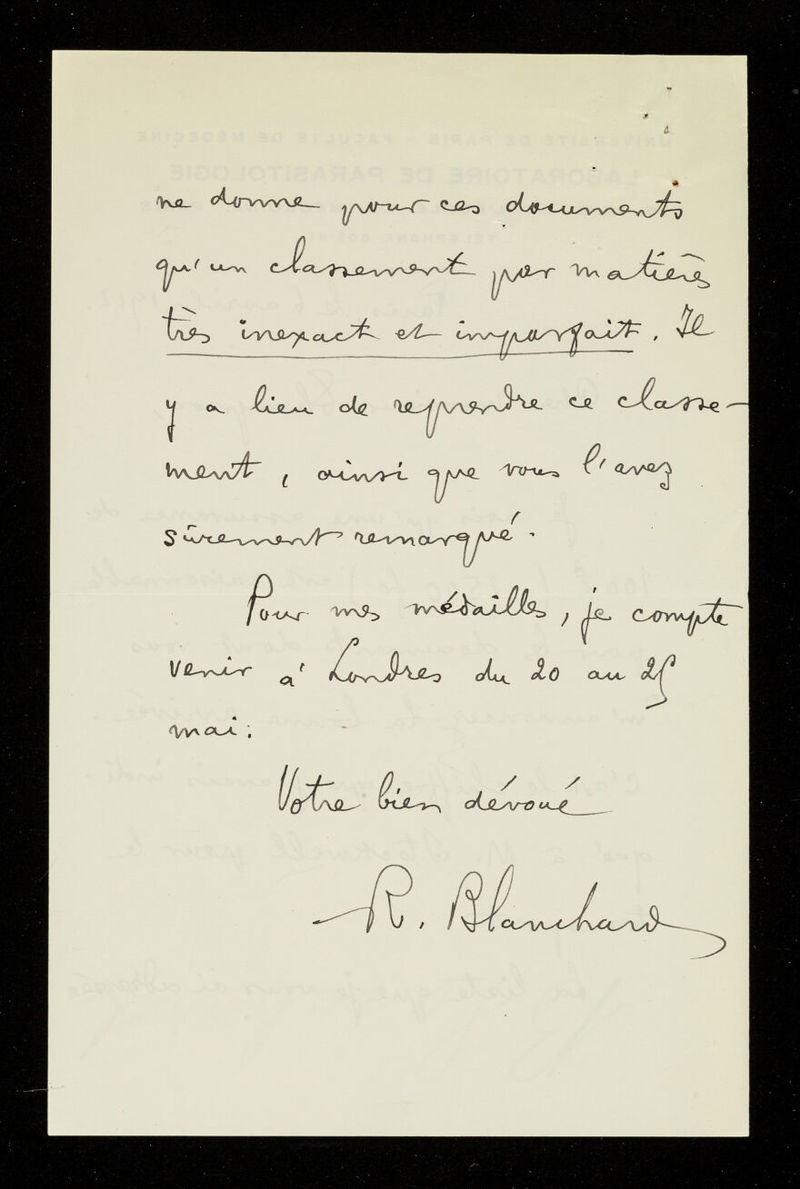 ne donne pour ces documents
qu'un classement par matières
très inexact et imparfait. Il
y a lieu de reprendre ce classe-
ment, ainsi que vous l'avez
sûrement remarqué.
Pour mes médailles, je compte
venir à Londres du 20 au 25
mai.
Votre bien dévoué
R. Blanchard